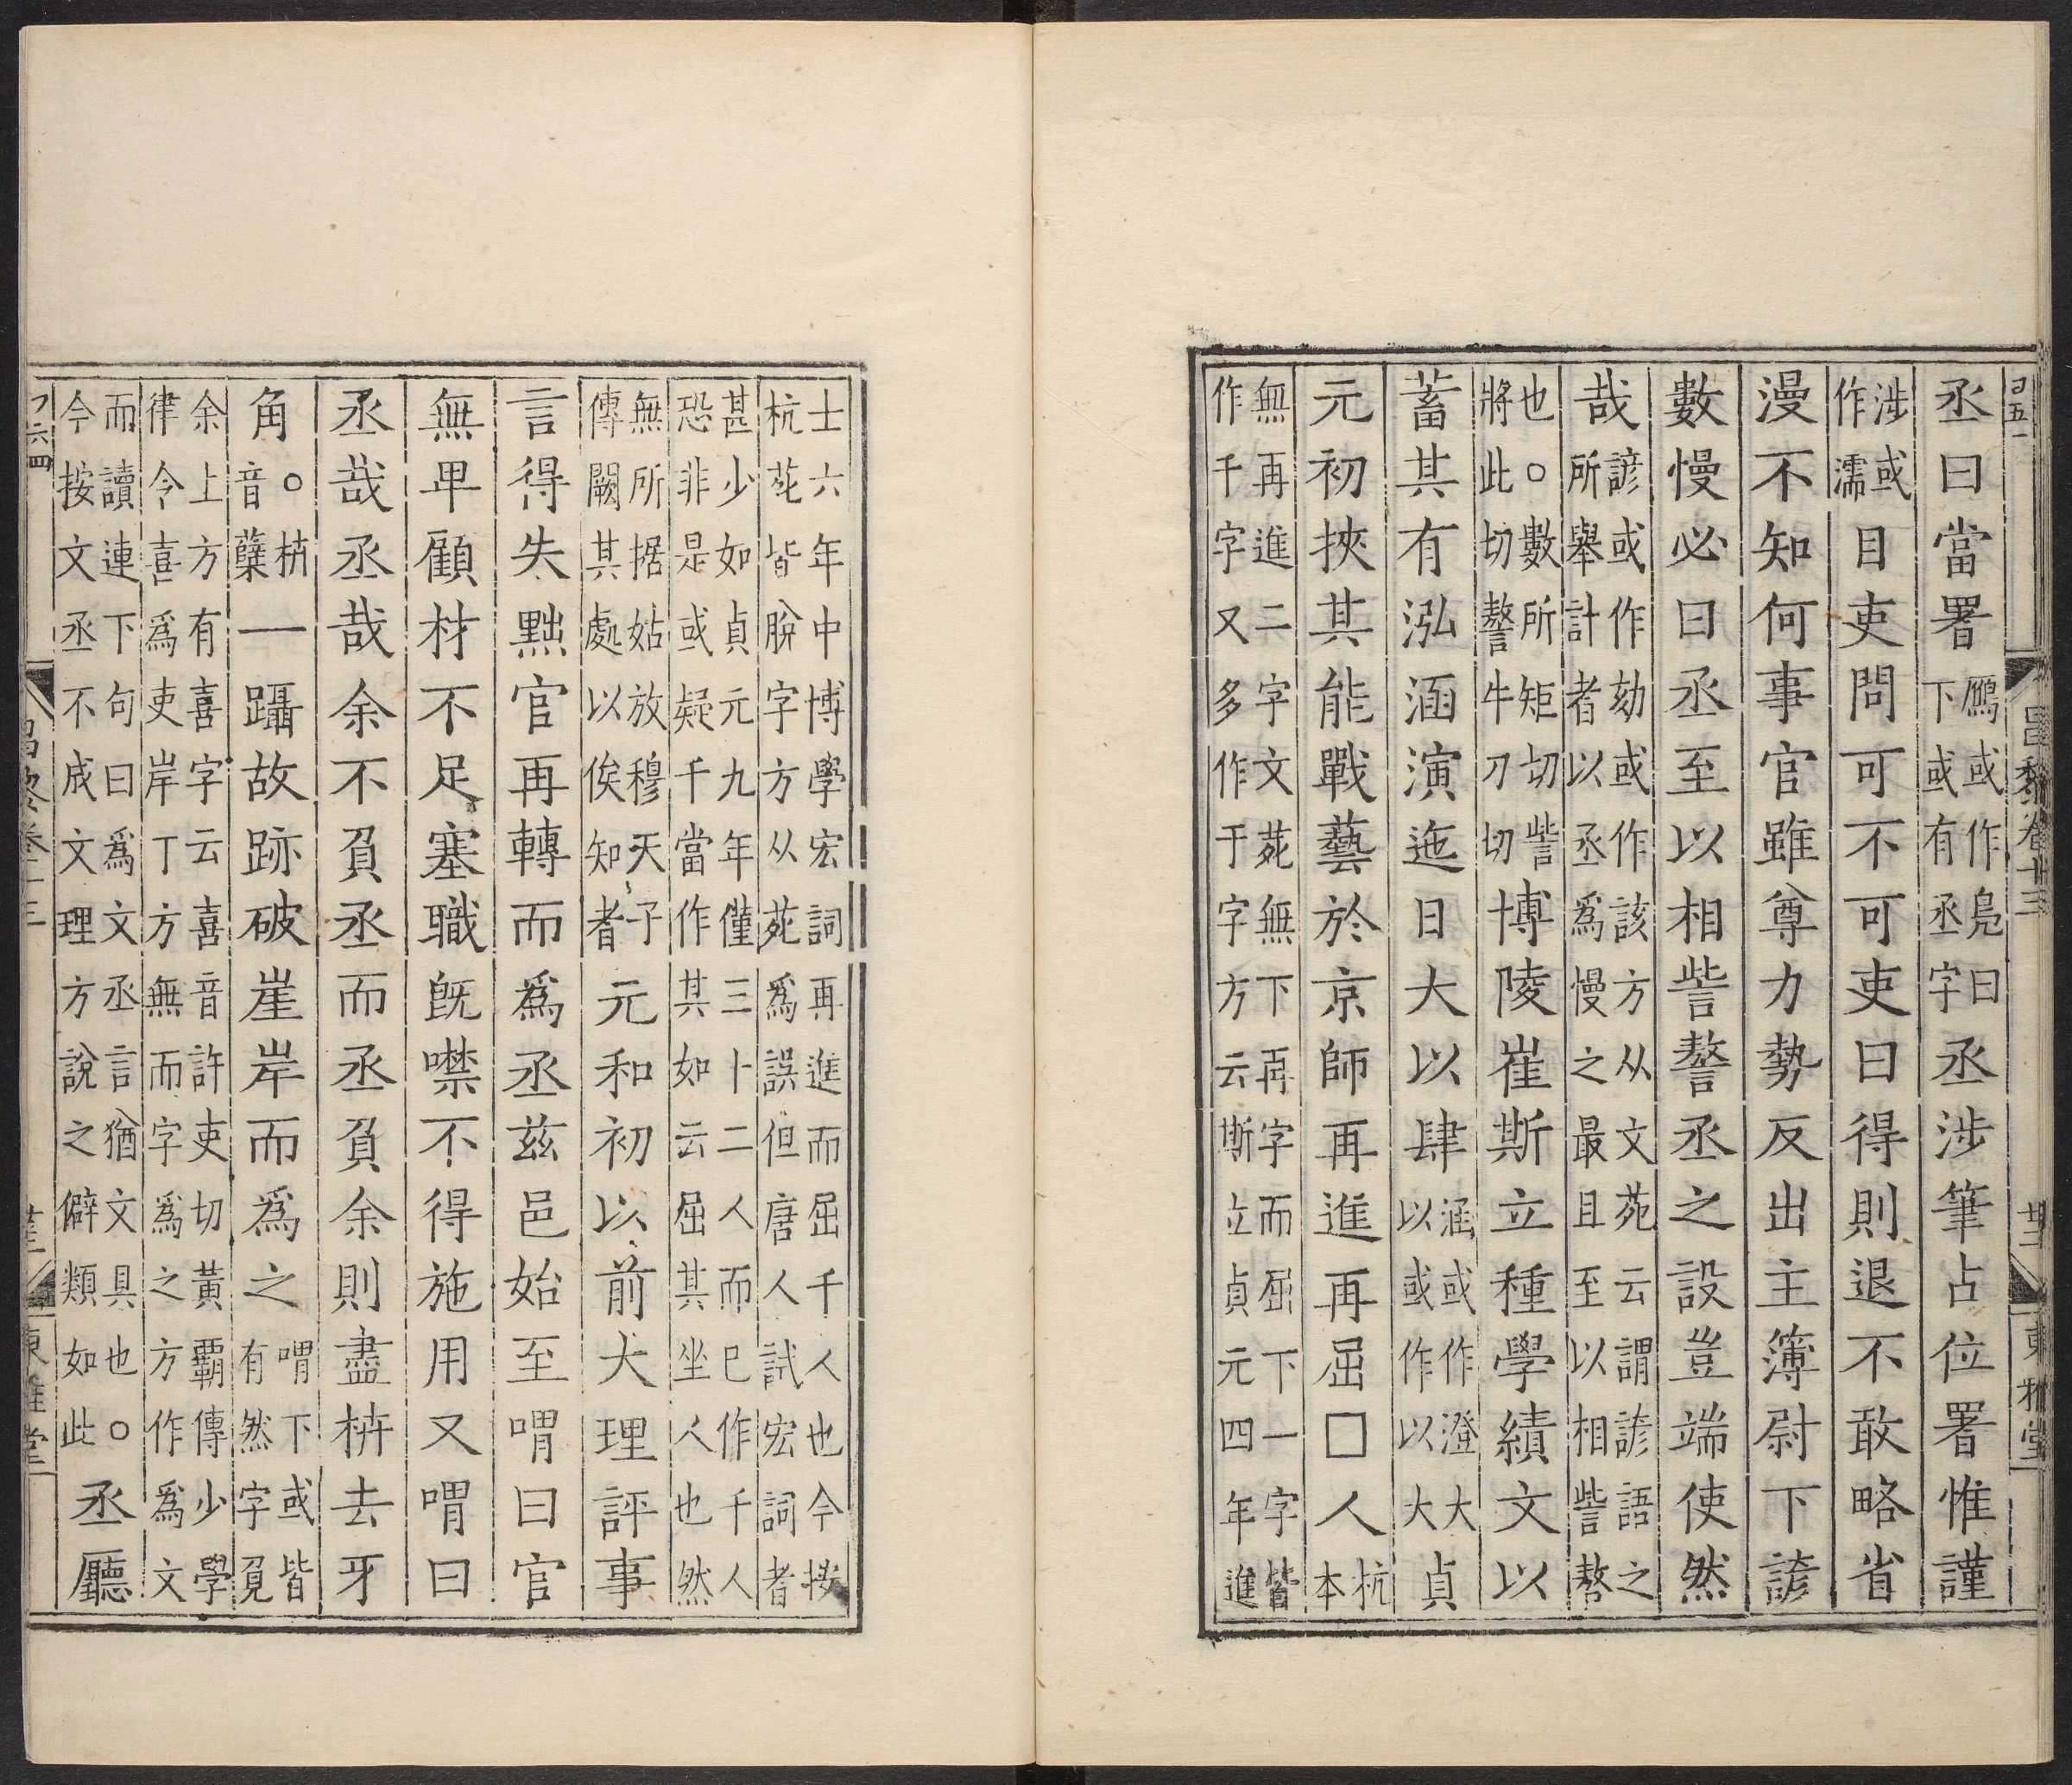 丞曰當署鴈或作鳧曰下或有丞字丞涉筆占位署惟謹
涉或作濡目吏問可不可吏曰得則退不敢略省
漫不知何事官雖尊力勢反出主簿尉下諺
數慢必曰丞至以相訾謷丞之設豈端使然
哉諺或作劾或作該方从文苑云謂諺語之所舉計者以丞爲慢之最且至以相訾謷
也○數所矩切訾將此切謷牛刀切博陵崔斯立種學績文以
蓄其有泓涵演迤日大以肆涵或作澄大以或作以大貞
元初挾其能戰藝於京師再進再屈□人杭本
無再進二字文苑無下再字而屈下一字皆作千字又多作于字方云斯立貞元四年進
士六年中博學宏詞再進而屈千人也今按杭苑皆脫字方从苑爲誤但唐人試宏詞者
甚少如貞元九年僅三十二人而已作千人恐非是或疑千當作其如云屈其坐人也然
無所据姑放穆天子傳闕其處以俟知者元和初以前大理評事
言得失黜官再轉而爲丞茲邑始至喟曰官
無卑顧材不足塞職旣噤不得施用又喟曰
丞哉丞哉余不負丞而丞負余則盡枿去牙
角○枿音蘖一躡故跡破崖岸而爲之喟下或皆有然字覓
余上方有喜字云喜音許吏切黃覇傳少學律令喜爲吏岸丁方無而字爲之方作爲文
而讀連下句曰爲文丞言猶文具也○今按文丞不成文理方說之僻類如此丞廳